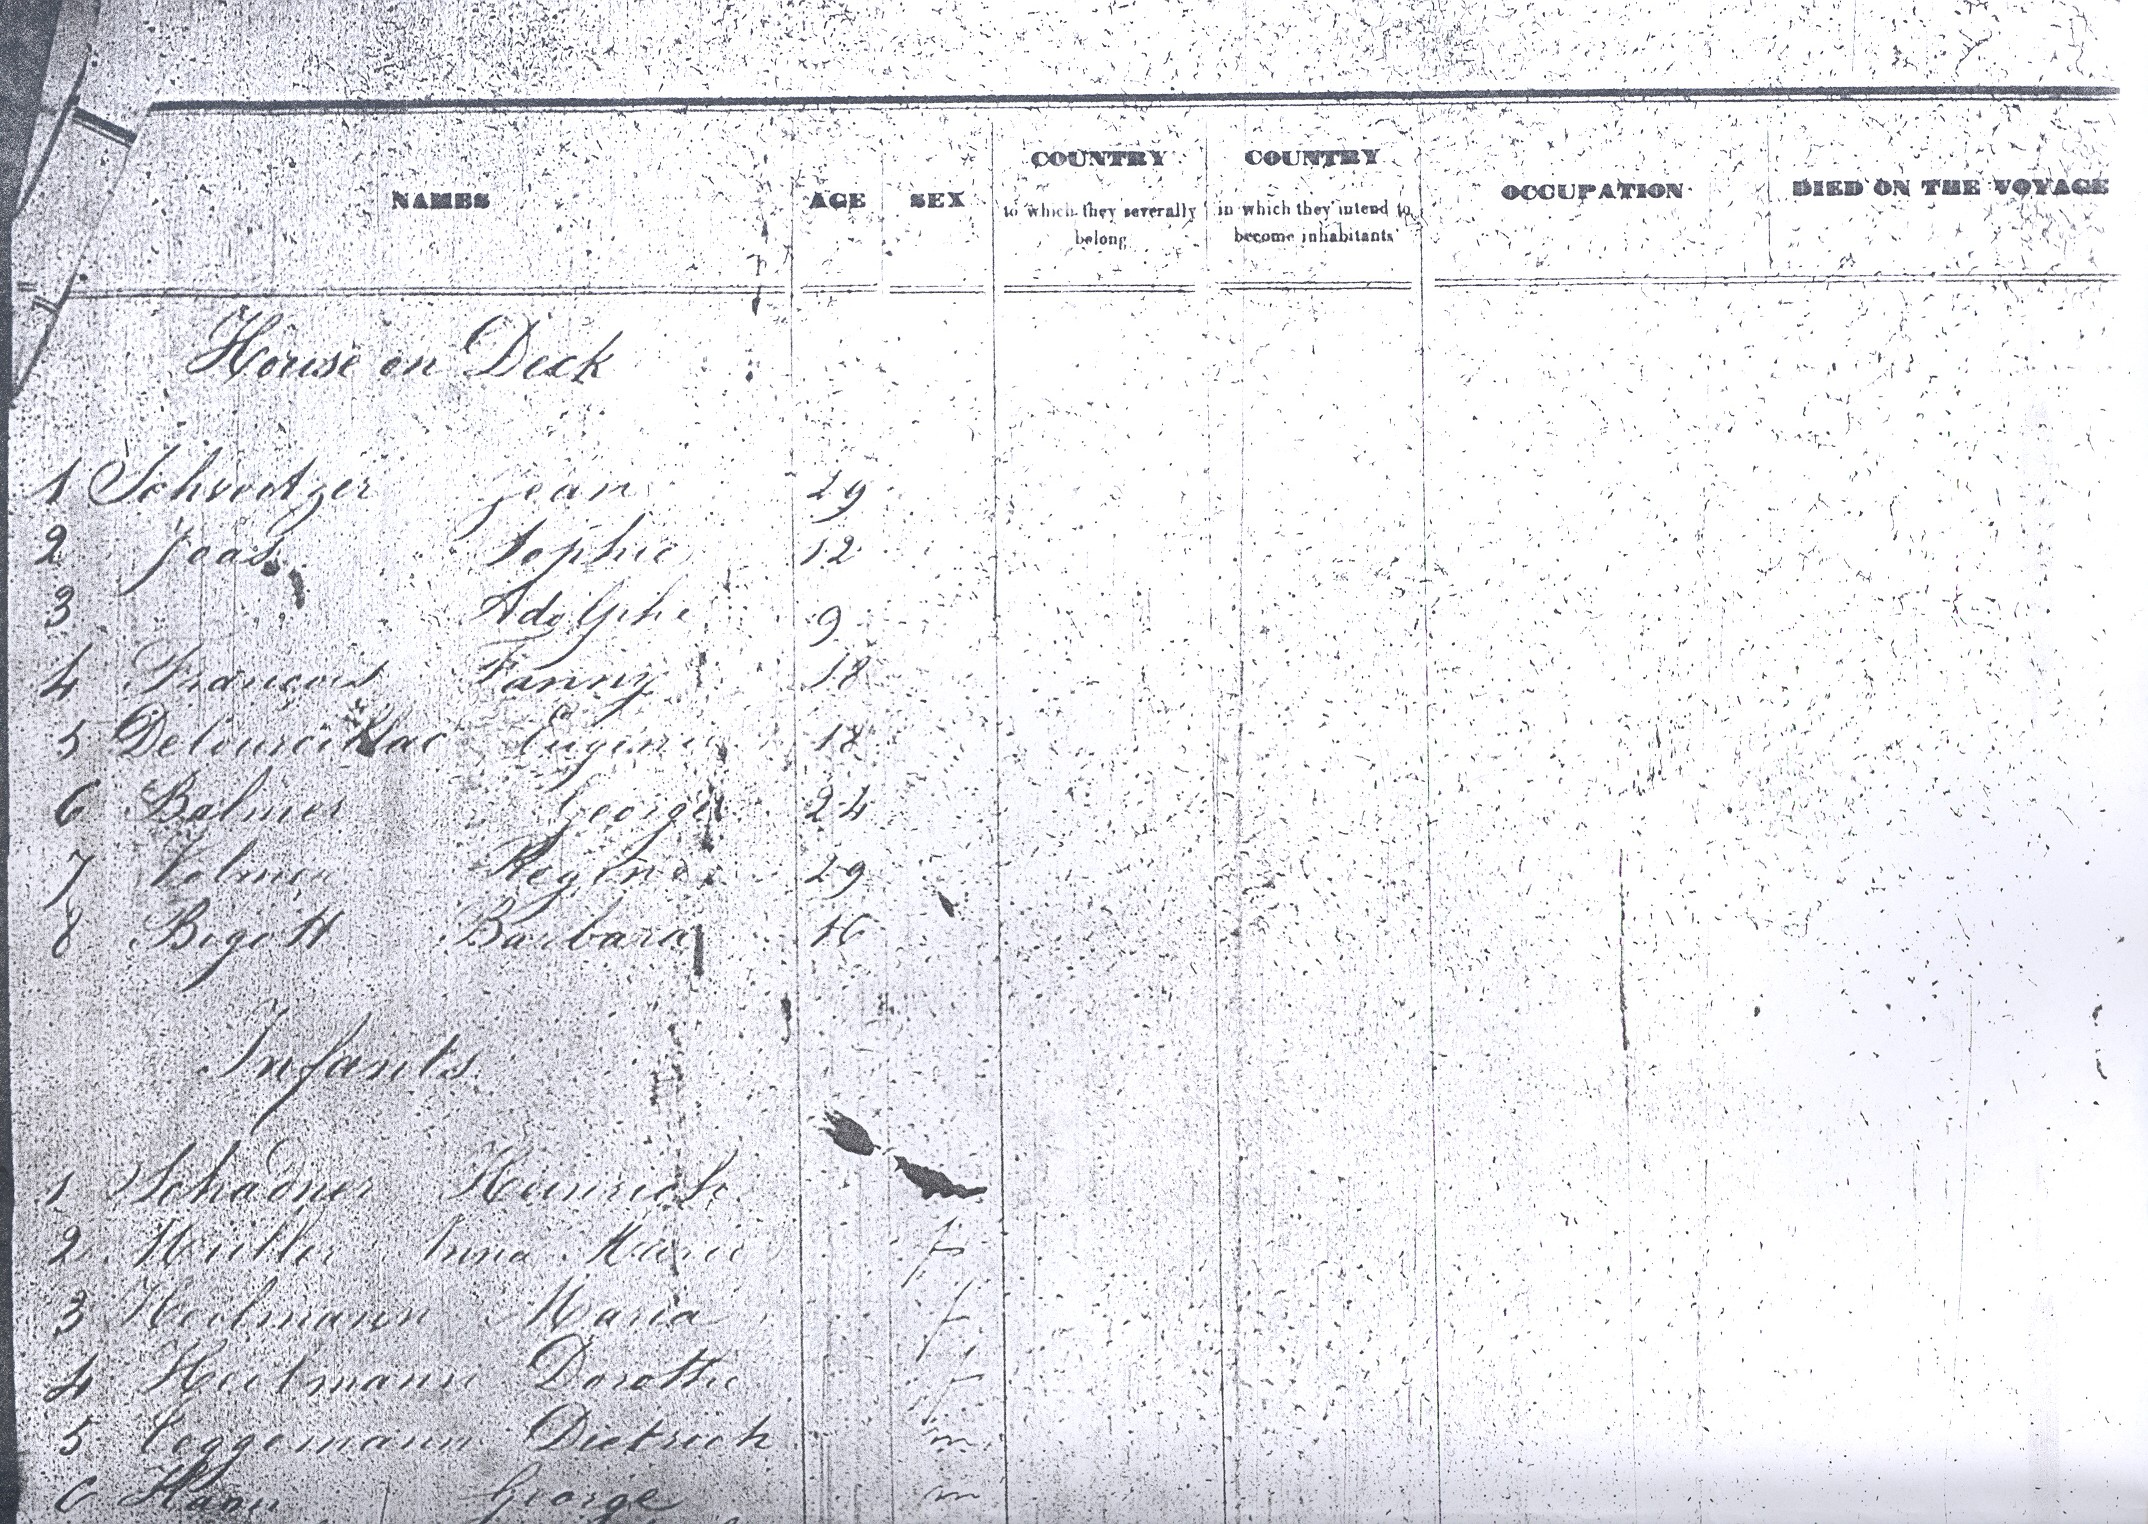 NAMES AGE SEX COUNTRY to which they severally belong COUNTRY in which they intend to become inhabitants OCCUPATION DIED ON THE VOYAGE
House on Deck
1 Jean 29
2 Sophie 12
3 Adolphe 9
4 Francois Fanny 18
5 Eugenie 18
6 Balmer George 24
7 Regina 29
8 Bigott Barbara 16
Infants
1 Schadner Heinrich
2 Anna Marie f
3 Heilmann Maria f
4 Heilmann Dorothe f
5 Dietrich m
6 George m